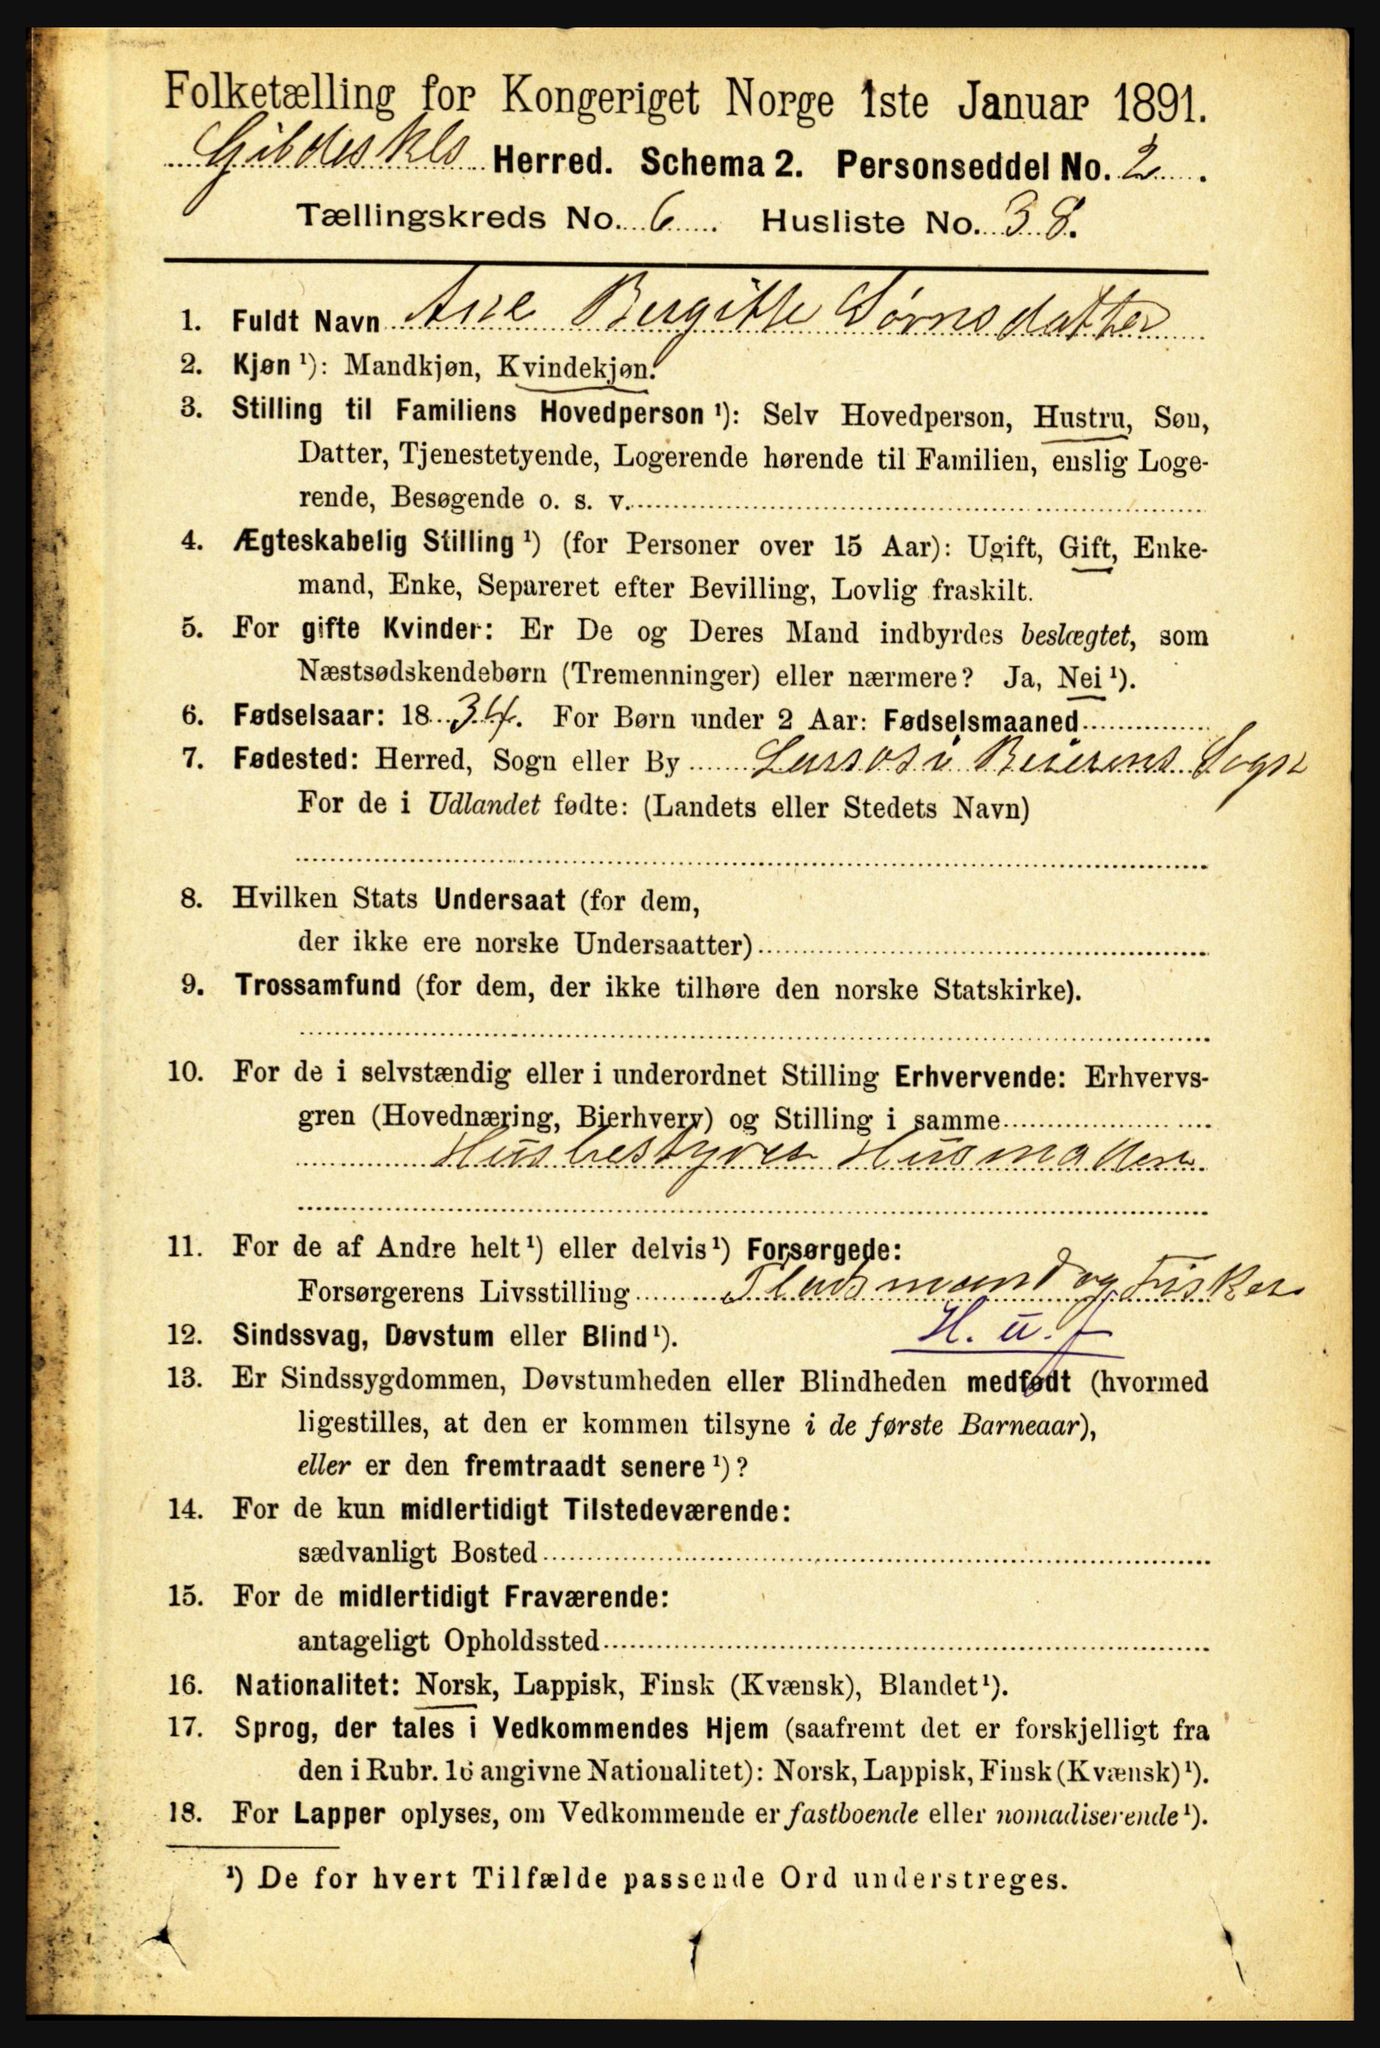 Folketælling for Kongeriget Norge 1ste Januar 1891.
Gildeskls Herred. Schema 2. Personseddel No. 2.
Tællingskreds No. 6. Husliste No. 38.
1. Fuldt Navn Ane Bergitte Sørnsdatter
2. Kjøn ¹): Mandkjøn, Kvindekjøn.
3. Stilling til Familiens Hovedperson ¹): Selv Hovedperson, Hustru, Søn,
Datter, Tjenestetyende, Logerende hørende til Familien, enslig Loge-
rende, Besøgende o. s. v.
4. Ægteskabelig Stilling ¹) (for Personer over 15 Aar): Ugift, Gift, Enke-
mand, Enke, Separeret efter Bevilling, Lovlig fraskilt.
5. For gifte Kvinder: Er De og Deres Mand indbyrdes beslægtet, som
Næstsødskendebørn (Tremenninger) eller nærmere? Ja, Nei ¹).
6. Fødselsaar: 1834. For Børn under 2 Aar: Fødselsmaaned
7. Fødested: Herred, Sogn eller By Larsos i Beierens Sogn
For de i Udlandet fødte: (Landets eller Stedets Navn)
8. Hvilken Stats Undersaat (for dem,
der ikke ere norske Undersaatter)
9. Trossamfund (for dem, der ikke tilhøre den norske Statskirke).
10. For de i selvstændig eller i underordnet Stilling Erhvervende: Erhvervs-
gren (Hovednæring, Bierhverv) og Stilling i samme
Husbestyrer Husmoder
11. For de af Andre helt ¹) eller delvis ¹) Forsørgede:
Forsørgerens Livsstilling Pladsmand og Fisker
12. Sindssvag, Døvstum eller Blind ¹). H. u. f
13. Er Sindssygdommen, Døvstumheden eller Blindheden medfødt (hvormed
ligestilles, at den er kommen tilsyne i de første Barneaar),
eller er den fremtraadt senere ¹)?
14. For de kun midlertidigt Tilstedeværende:
sædvanligt Bosted
15. For de midlertidigt Fraværende:
antageligt Opholdssted
16. Nationalitet: Norsk, Lappisk, Finsk (Kvænsk), Blandet ¹).
17. Sprog, der tales i Vedkommendes Hjem (saafremt det er forskjelligt fra
den i Rubr. 16 angivne Nationalitet): Norsk, Lappisk, Finsk (Kvænsk) ¹).
18. For Lapper oplyses, om Vedkommende er fastboende eller nomadiserende ¹).
¹) De for hvert Tilfælde passende Ord understreges.